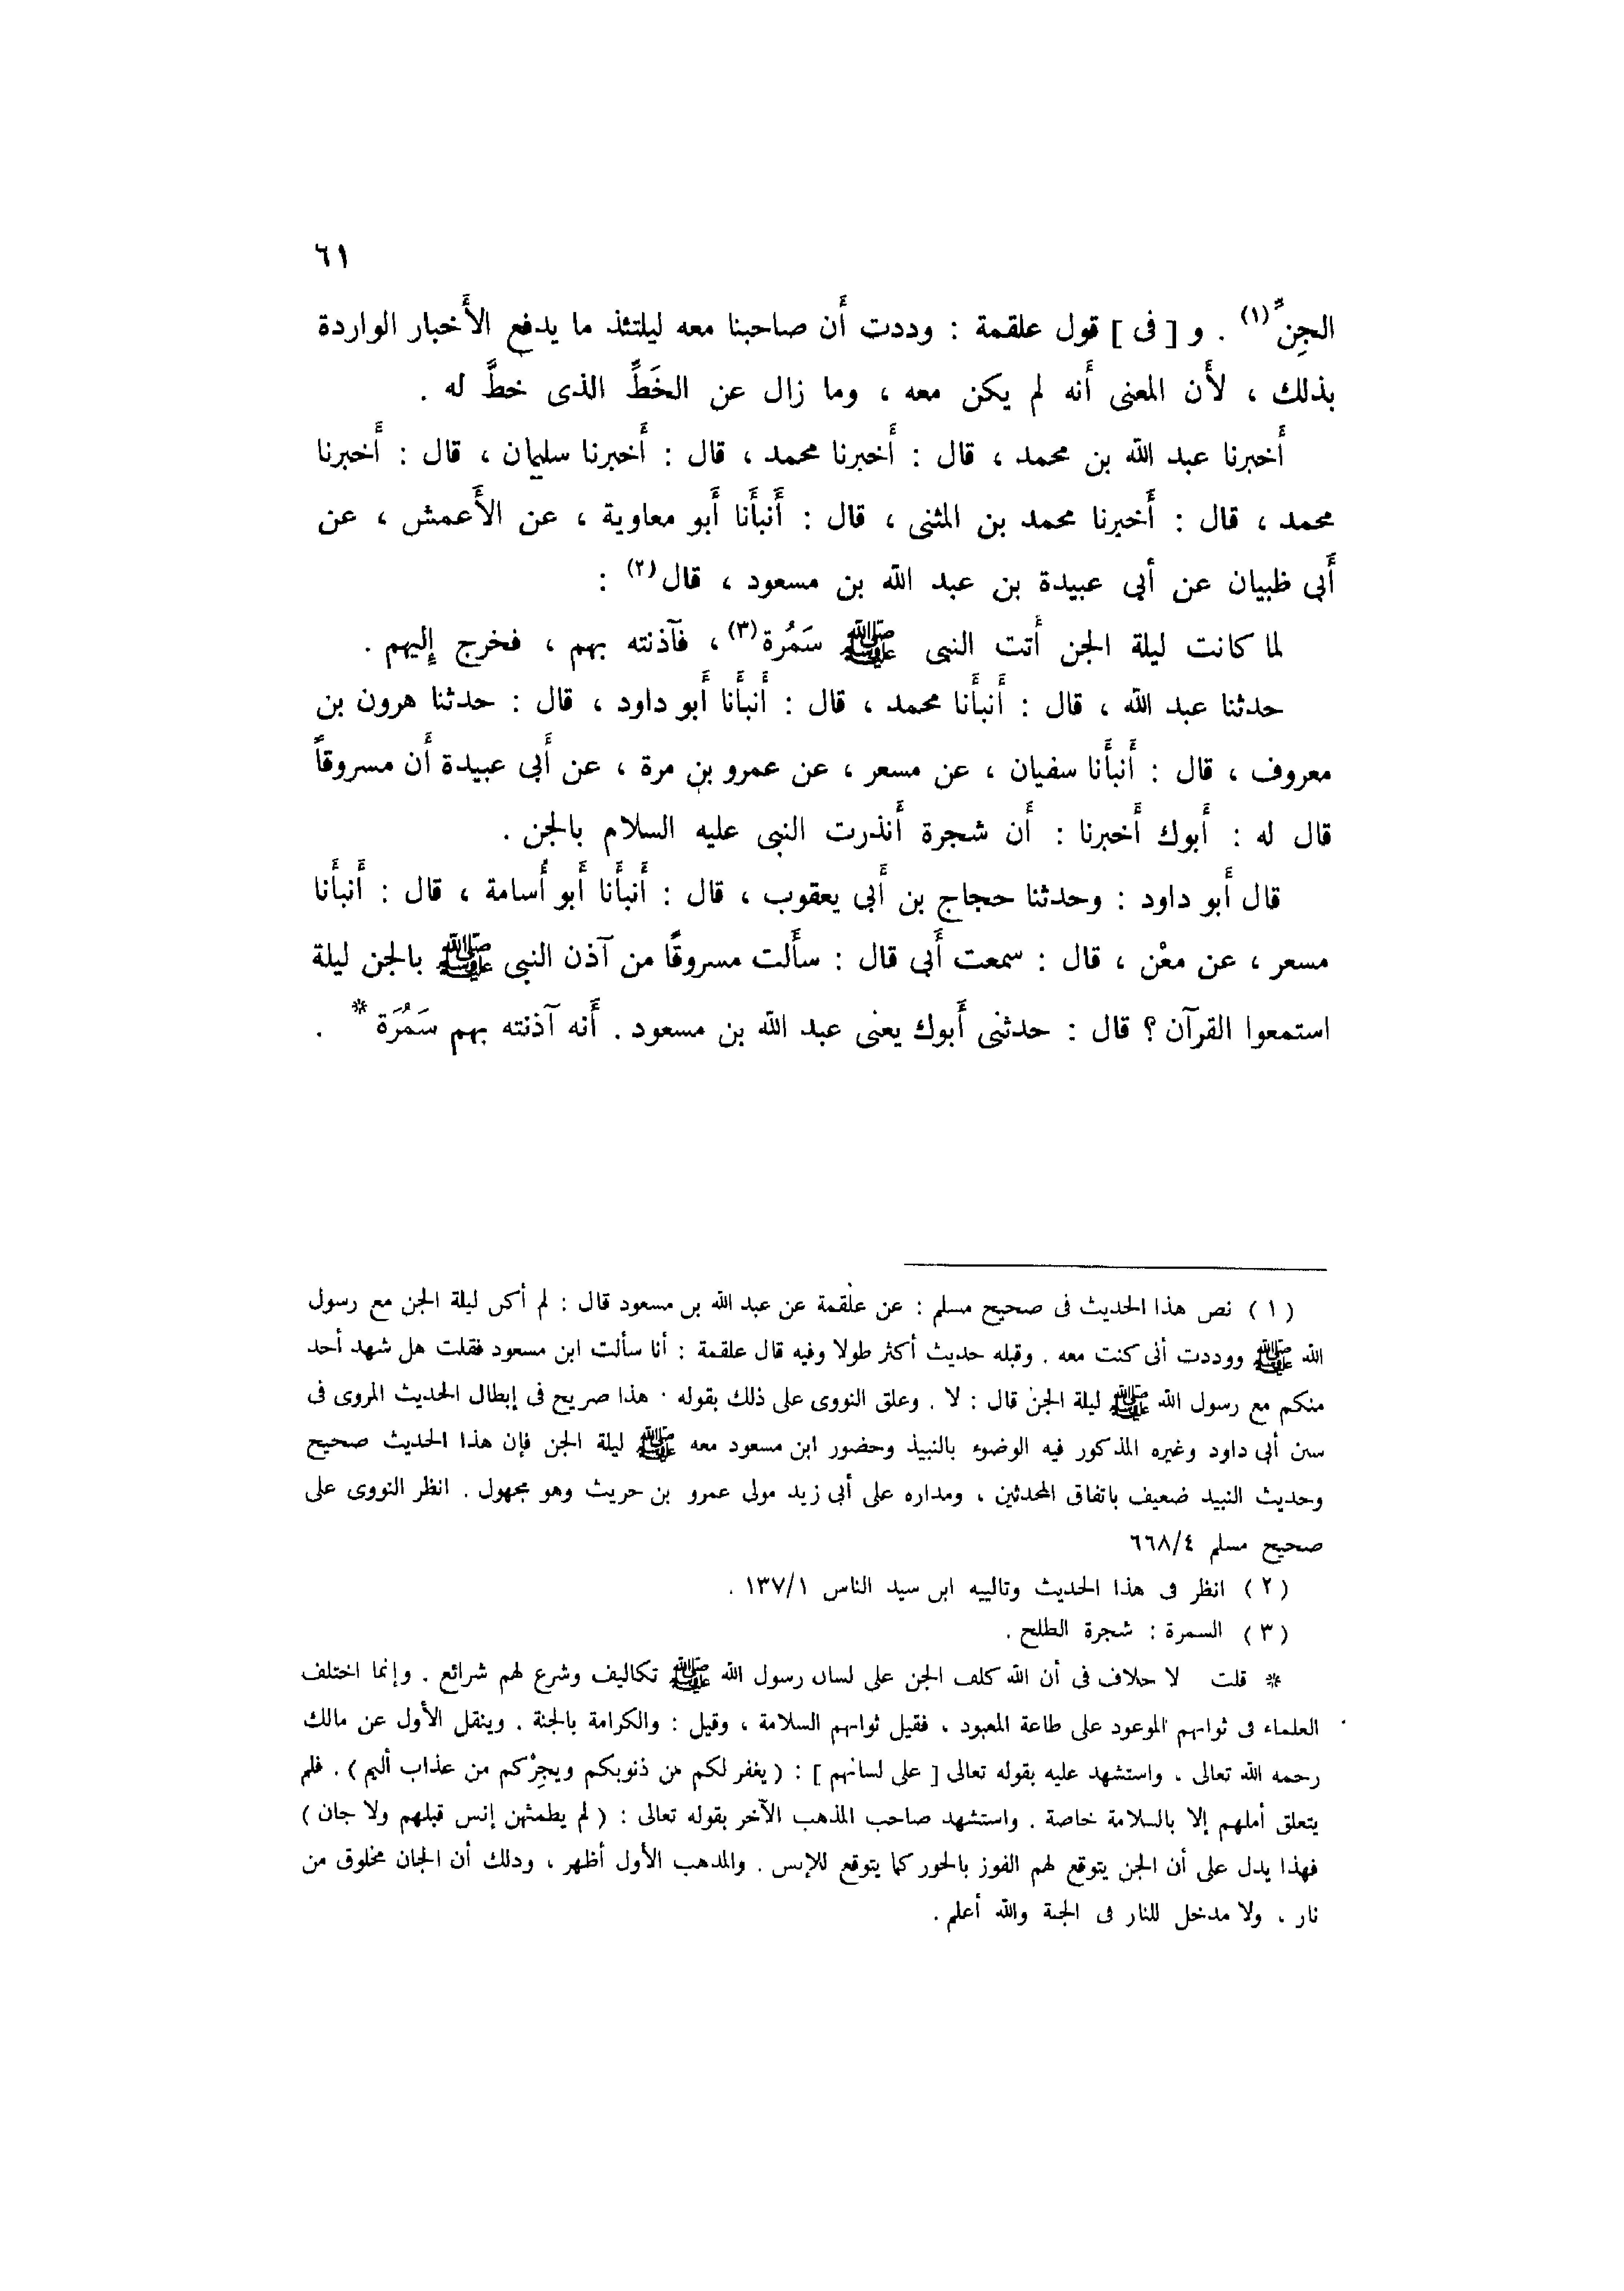 ٦١
الجِنِّ(١) . و [ فى ] قول علقمة : وددت أَن صاحبنا معه ليلتئذ ما يدفع الأَخبار الواردة
بذلك ، لأَن المعنى أَنه لم يكن معه ، وما زال عن الخَطِّ الذى خطَّ له .
أَخبرنا عبد الله بن محمد ، قال : أَخبرنا محمد ، قال : أَخبرنا سليمان ، قال : أَخبرنا
محمد ، قال : أَخبرنا محمد بن المثنى ، قال : أَنبأَنا أَبو معاوية ، عن الأَعمش ، عن
أَبى ظبيان عن أبى عبيدة بن عبد الله بن مسعود ، قال(٢) :
لما كانت ليلة الجن أَتت النبى ﷺ سَمُرة(٣) ، فآذنته بهم ، فخرج إليهم .
حدثنا عبد الله ، قال : أَنبأَنا محمد ، قال : أَنبأَنا أَبو داود ، قال : حدثنا هرون بن
معروف ، قال : أَنبأَنا سفيان ، عن مسعر ، عن عمرو بن مرة ، عن أَبى عبيدة أَن مسروقاً
قال له : أَبوك أَخبرنا : أَن شجرة أَنذرت النبى عليه السلام بالجن .
قال أَبو داود : وحدثنا حجاج بن أَبى يعقوب ، قال : أَنبأَنا أَبو أُسامة ، قال : أَنبأَنا
مسعر ، عن معْن ، قال : سمعت أَبى قال : سأَلت مسروقًا من آذن النبى ﷺ بالجن ليلة
استمعوا القرآن ؟ قال : حدثنى أَبوك يعنى عبد الله بن مسعود . أَنه آذنته بهم سَمُرَة * .
( ١ ) نص هذا الحديث فى صحيح مسلم : عن علقمة عن عبد الله بن مسعود قال : لم أكن ليلة الجن مع رسول
الله ﷺ ووددت أنى كنت معه . وقبله حديث أكثر طولا وفيه قال علقمة : أنا سألت ابن مسعود فقلت هل شهد أحد
منكم مع رسول الله ﷺ ليلة الجن قال : لا . وعلق النووى على ذلك بقوله . هذا صريح فى إبطال الحديث المروى فى
سنن أبى داود وغيره المذكور فيه الوضوء بالنبيذ وحضور ابن مسعود معه ﷺ ليلة الجن فإن هذا الحديث صحيح
وحديث النبيد ضعيف باتفاق المحدثين ، ومداره على أبى زيد مولى عمرو بن حريث وهو مجهول . انظر النووى على
صحيح مسلم ٦٦٨/٤
( ٢ ) انظر فى هذا الحديث وتالييه ابن سيد الناس ١٣٧/١ .
( ٣ ) السمرة : شجرة الطلح .
* قلت لا خلاف فى أن الله كلف الجن على لسان رسول الله ﷺ تكاليف وشرع لهم شرائع . وإنما اختلف
العلماء فى ثوابهم الموعود على طاعة المعبود ، فقيل ثوابهم السلامة ، وقيل : والكرامة بالجنة . وينقل الأول عن مالك
رحمه الله تعالى ، واستشهد عليه بقوله تعالى [ على لسانهم ] : ( يغفر لكم من ذنوبكم ويجِرْكم من عذاب أليم ) . فلم
يتعلق أملهم إلا بالسلامة خاصة . واستشهد صاحب المذهب الآخر بقوله تعالى : ( لم يطمثهن إنس قبلهم ولا جان )
فهذا يدل على أن الجن يتوقع لهم الفوز بالحور كما يتوقع للإنس . والمذهب الأول أظهر ، وذلك أن الجان مخلوق من
نار ، ولا مدخل للنار فى الجنة والله أعلم .